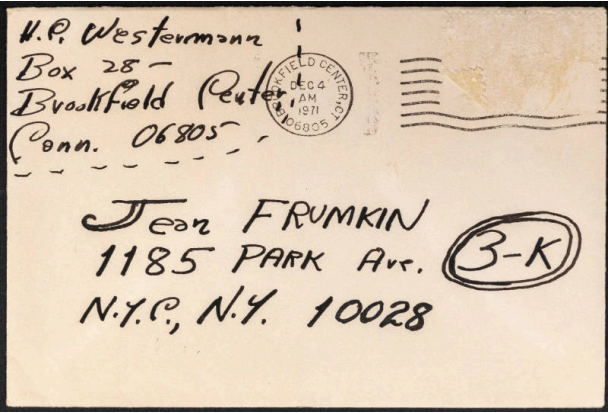 H.C. Westermann
Box 28-
Brookfield Center,
Conn. 06805
BROOKFIELD CENTER, CT
DEC 4
AM
1971
06805
Jean FRUMKIN
1185 PARK Ave. 3-K
N.Y.C., N.Y. 10028